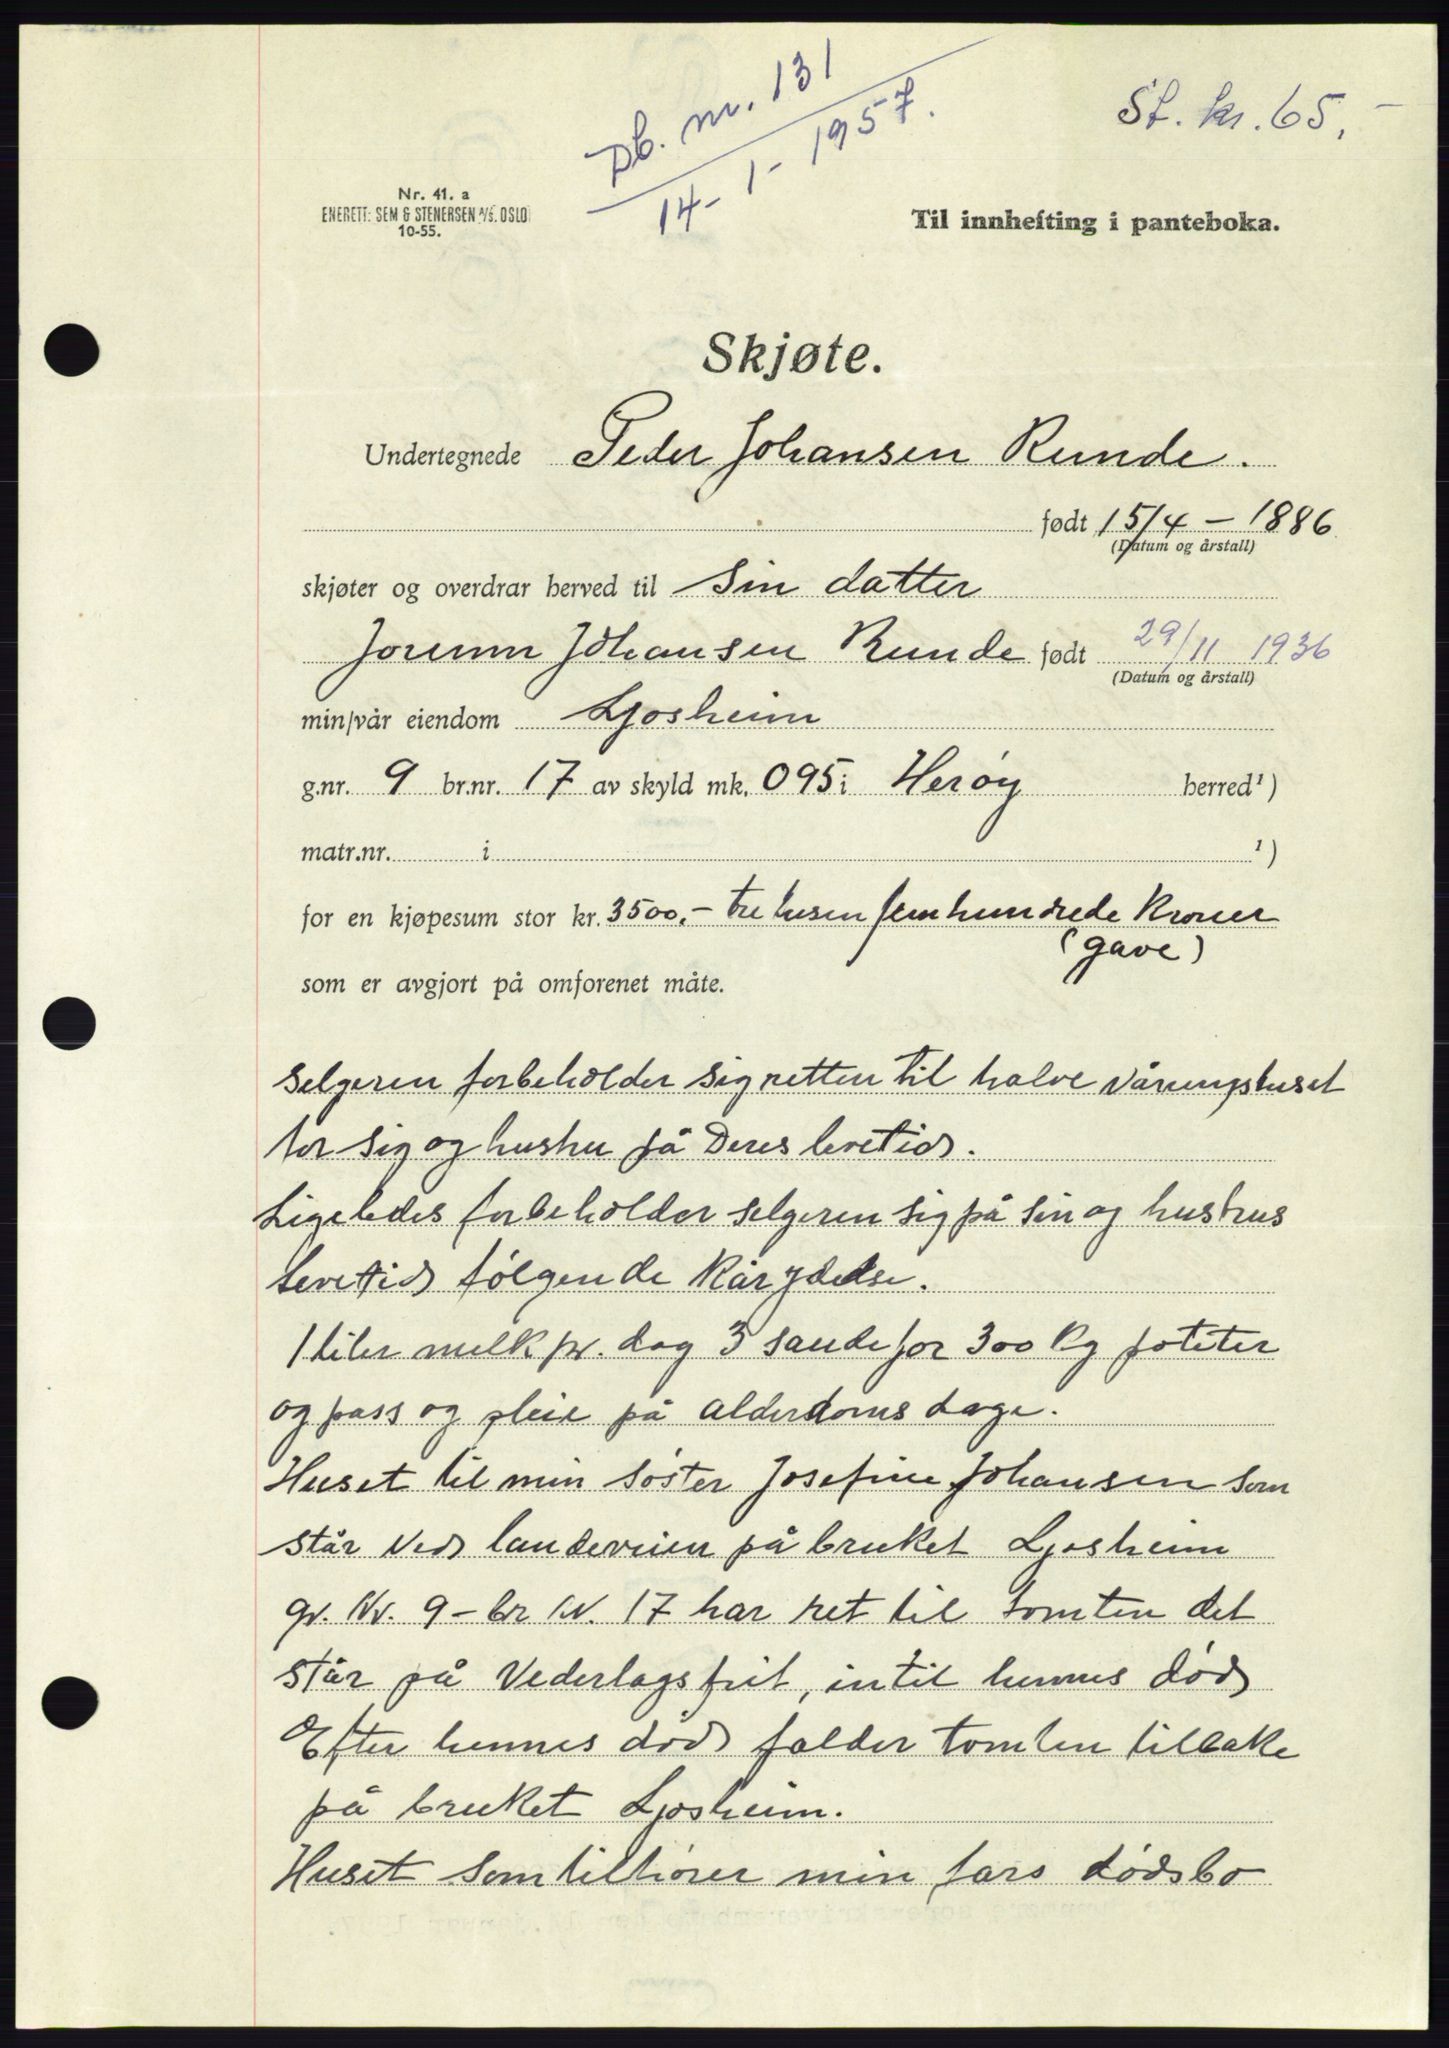 pb. nr. 131
14-1-1957.
St. kr. 65,-
Nr. 41. a
ENERETT: SEM & STENERSEN A/S. OSLO
10-55.
Til innhefting i panteboka.
Skjøte.
Undertegnede Peder Johansen Runde.
født 15/4 - 1886
(Datum og årstall)
skjøter og overdrar herved til sin datter
Jorunn Johansen Runde født 29/11 1936
(Datum og årstall)
min/vår eiendom Ljosheim
g.nr. 9 br.nr. 17 av skyld mk. 095 i Herøy herred ¹)
matr.nr. i ¹)
for en kjøpesum stor kr. 3500.- tre tusen femhundrede Kroner
(gave)
som er avgjort på omforenet måte.
Selgeren forbeholder sig retten til halve våningshuset
for sig og hustru på Deres levetid.
Ligeledes forbeholder selgeren sig på sin og hustrus
levetid følgende Kårydelse.
1 liter melk pr. dag 3 sauefor 300 Kg poteter
og pass og pleie på alderdoms dage.
Huset til min søster Josefine Johansen som
står ved landeveien på bruket Ljosheim
gr. Nr. 9 - br Nr. 17 har ret til tomten det
står på vederlagsfrit, intil hennes død
Efter hennes død falder tomten tilbake
på bruket Ljosheim.
Huset som tilhører min fars dødsbo